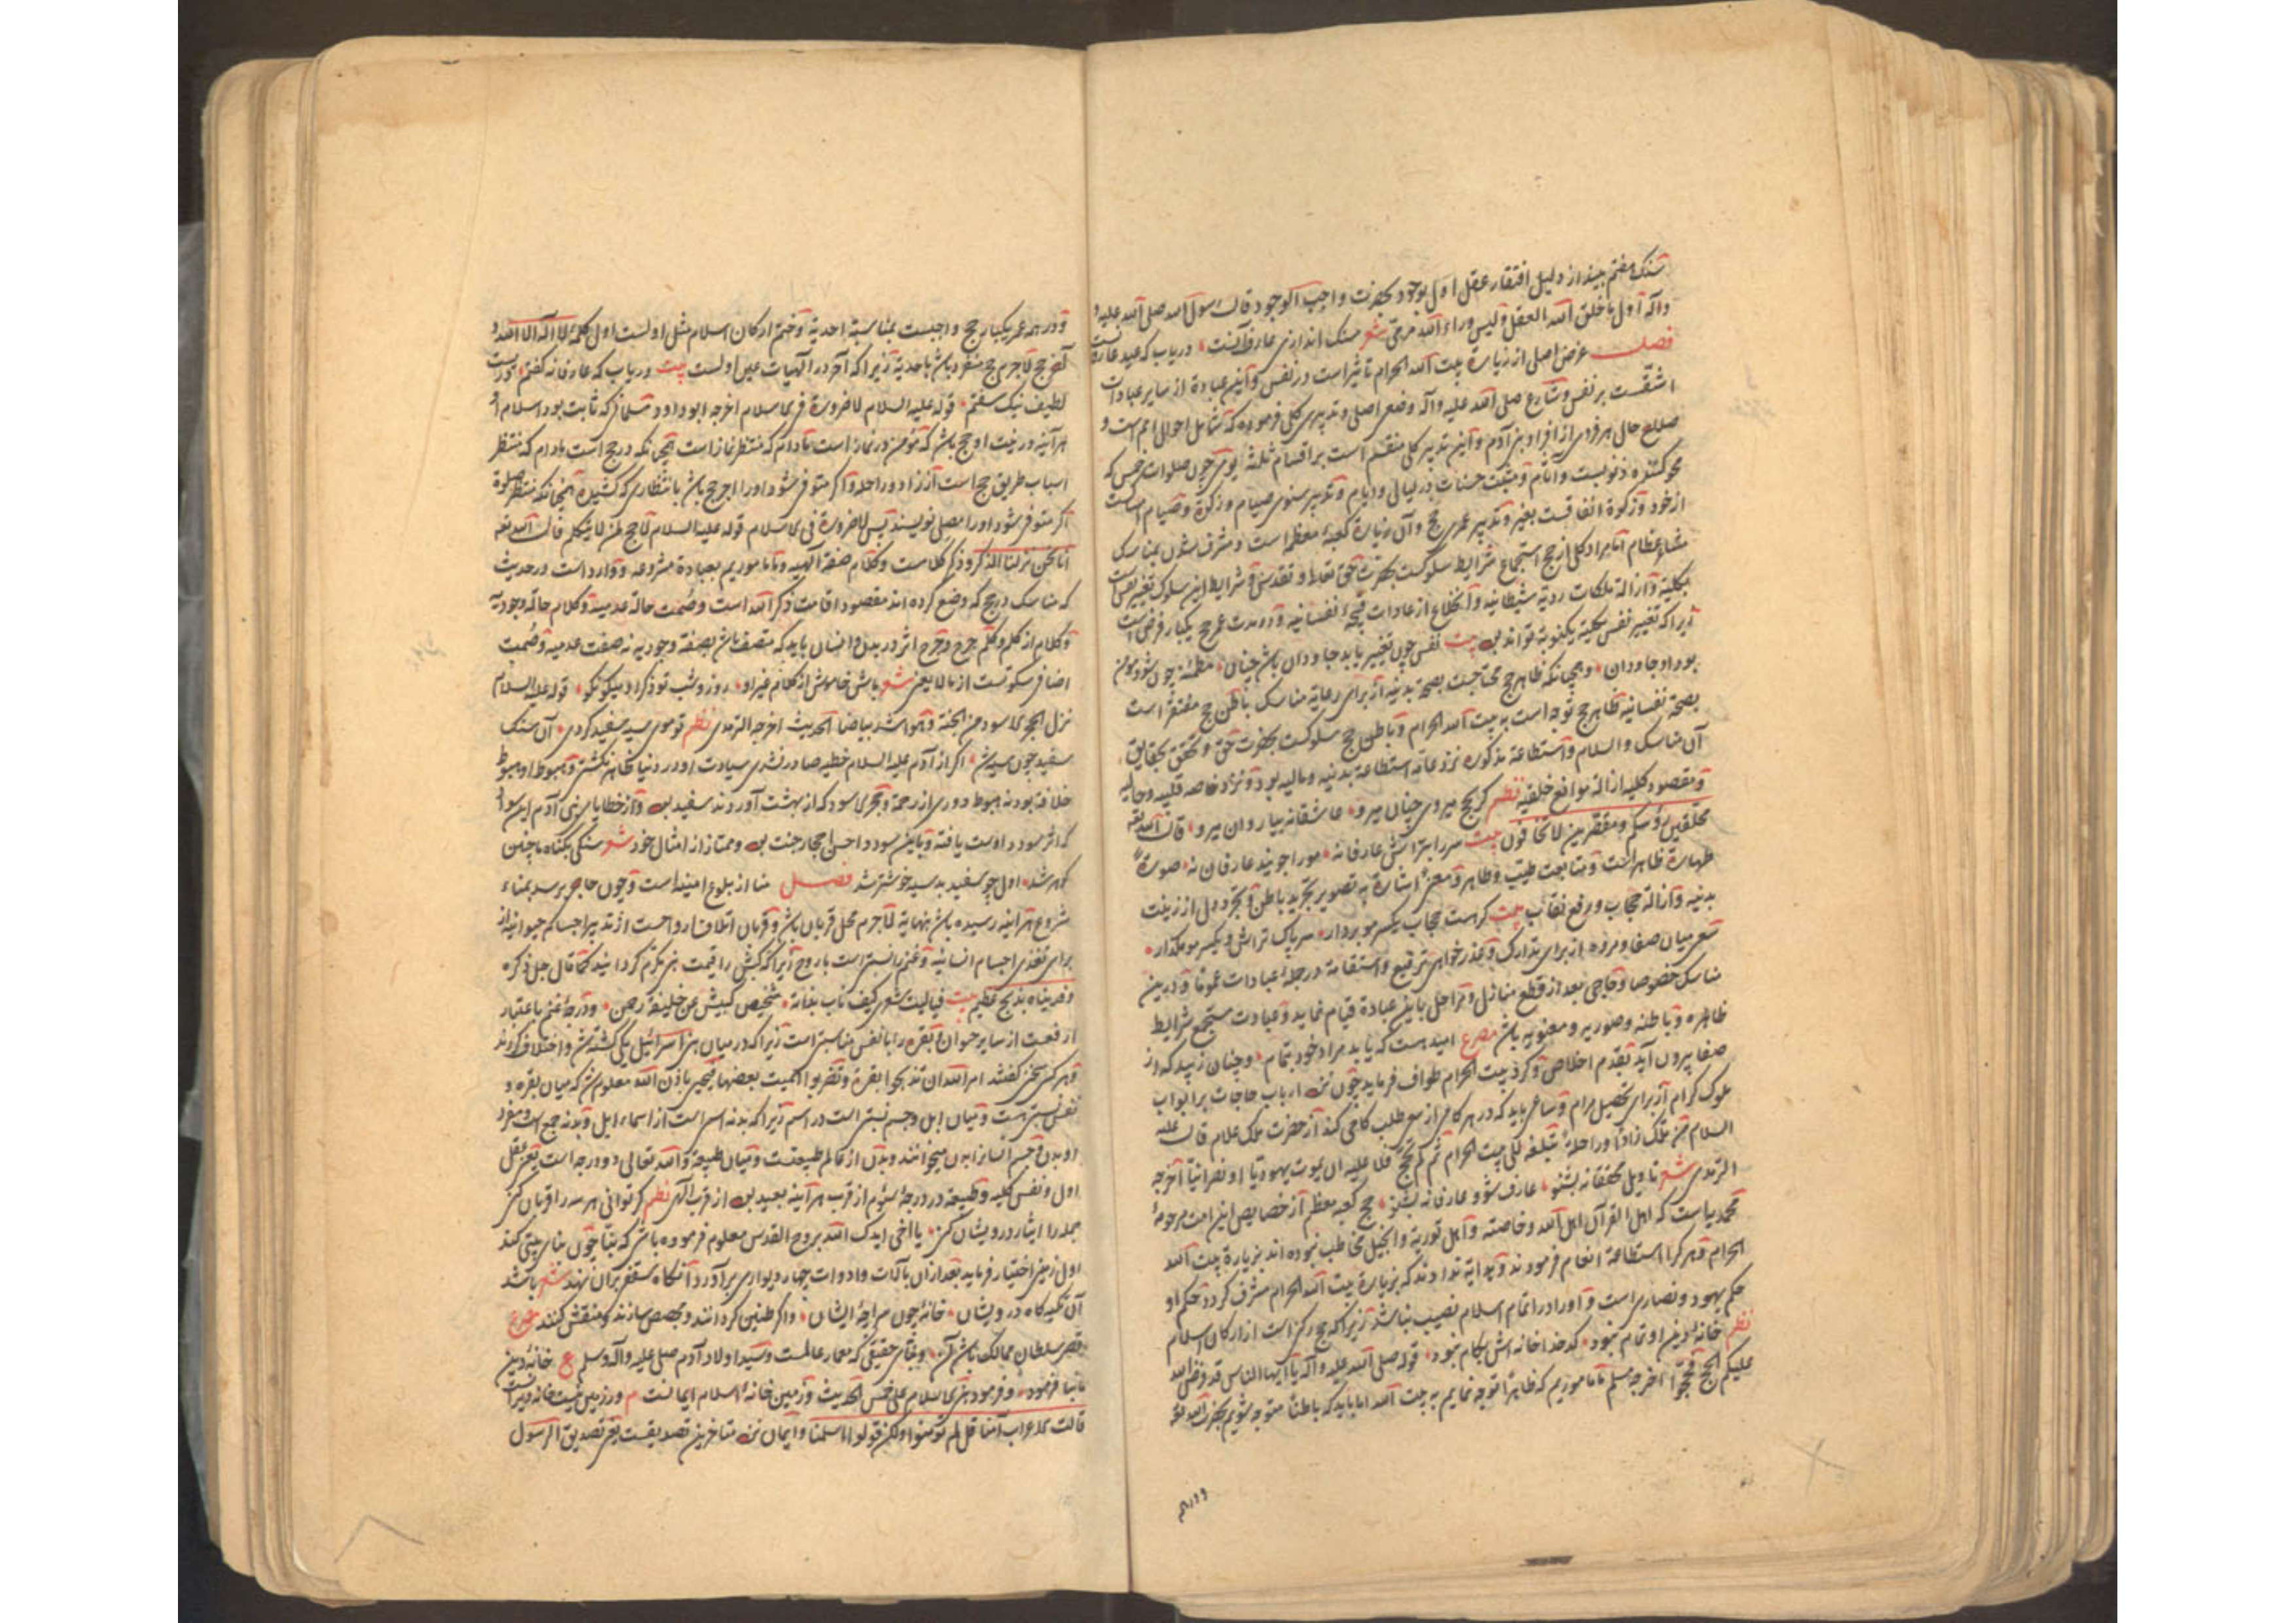 سنک هفتم بینداز دلیل افتقار عقل اول بوجود حضرت واجب الوجود قال رسول الله صلی الله علیه و
واله اول ما خلق الله العقل ولیس وراء الله مرمی شعر سنک اندازی عارف آنست دریاب که عید عارفانست
فصل غرض اصلی از زیارة بیت الله الحرام تاثیر است در نفس و این عبادة از سایر عبادات
اشقست بر نفس و شارع صلی الله علیه واله وضعی اصلی و تدبیری کلی فرموده که شامل احوال امم است و
صلاح حال هر فردی از افراد بنی آدم و این تدبیر کلی منقسم است بر اقسام ثلثه یومی چون صلوات خمس که
محو کننده ذنوبست و آثام و مثبت حسنات در لیالی و ایام و تدبیر سنوی صیام و زکوة و صیام امساکست
از خود و زکوة انفاقست بغیر و تدبیر عمری حج و آن زیارة کعبهٔ معظم است و مشرف شدن بمناسک
مشاعر عظام اما مراد کلی از حج استجماع شرایط سلوکست بحضرت حق تعالی و تقدس و شرایط این سلوک تغییر نفس است
بکلیة و ازالة ملکات ردیهٔ شیطانیه و انخلاع از عادات قبیحهٔ نفسانیه و در مدت عمر حج یکبار فرض است
زیرا که تغییر نفس بکلیة یکنوبة تواند بود بیت نفس چون تغییر یابد جاودان باشد چنان مطمئنه چون شود مومن
بود او جاودان و همچنانکه ظاهر حج محتاجست بصحة بدنیه از برای رعایة مناسک باطن حج مفتقر است
بصحة نفسانیه ظاهر حج توجه است به بیت الله الحرام و باطن حج سلوکست بحضرت حق و تحقق بحقایق
آن مناسک والسلام و استطاعة مذکوره نزد عامه استطاعة بدنیه و مالیه بود و نزد خاصه قلبیه و حالیه
و مقصود کلیه ازالة موانع خلقیه نظم کر بحج میروی چنان میرو عاشقانه بیا روان میرو قال الله تعه
محلقین رؤسکم و مقصرین لا تخافون بیت سر را بتراش عارفانه مو را جویند عارفان نه صورة
طهارة ظاهر است و متابعت طیب و طاهر و معنی اشارة به تصویر تجرید باطن و تجرد دل از زینت
بدنیه و ازالة حجاب و رفع نقاب بیت کر هست حجاب یکسر مو بردار سر پاک تراش و یکسر مو مکذار
سعی میان صفا و مروه از برای تدارک و عذر خواهی ترقیع و استقامة در جملهٔ عبادات عموما و درین
مناسک خصوصا و حاجی بعد از قطع منازل و مراحل باین عبادة قیام نماید و عبادت مستجمع شرایط
ظاهره و باطنه و صوریه و معنویه باشد مصرع امید هست که یابد مراد خود بتمام و چنان زیبد که از
صفا بیرون آید بقدم اخلاص و کرد بیت الحرام طواف فرماید چون ارباب حاجات بر ابواب
ملوک کرام از برای تحصیل مرام و ساعی باید که در هر کامی از سعی طلب کامی کند از حضرت ملک علام قال علیه
السلام من ملک زادا و راحلة تبلغه الی بیت الحرام ثم لم یحج فلا علیه ان یموت یهودیا او نصرانیا اخرجه
الترمذی شعر تاویل محققانه بشنو عارف شو و عارفانه بشنو حج کعبه معظم از خصایص این امت مرحومهٔ
محمدیاست که اهل القرآن اهل الله و خاصته و اهل توریة و انجیل مخاطب نبوده اند بزیارة بیت الله
الحرام و هر کرا استطاعة انعام فرمودند و پروایهٔ ندادند که بزیارة بیت الله الحرام مشرف کردد حکم او
حکم یهود و نصاری است و او را در اتمام اسلام نصیب نباشد زیرا که حج رکنی است از ارکان اسلام
نظم خانهٔ دین او تمام نبود کدخدا خانه اش بکام نبود قوله صلی الله علیه واله یا ایها الناس قد فرض الله
علیکم الحج فحجوا اخرجه مسلم اما ماموریم که ظاهرا توجه نمایم به بیت الله اما باید که باطنا متوجه شویم بحضرت الله تعه
و در همه
و در همه عمر یکبار حج واجبست بمناسبة احدیة و ختم ارکان اسلام مثل اولست اول کلمهٔ لا اله الا الله و
آخر حج لاجرم حج منفرد باشد باحدیة زیرا که آخر در الهیات عین اولست بیت دریاب که عارفانه کفتم در
لطیف نیک سفتم قوله علیه السلام لا صرورة فی الاسلام اخرجه ابو داود مسلمانی که ثابت بود اسلام او
هر آینه در نیت او حج باشد که مؤمن در نماز است مادام که منتظر نماز است همچنانکه در حج است مادام که منتظر
اسباب طریق حج است از زاد و راحله و اکر متوفی شود او را اجر حج باشد بانتظاری که کشیده همچنانکه منتظر صلوة
اکر متوفی شود او را مصلی نویسند پس لا صرورة فی الاسلام قوله علیه السلام لا حج لمن لا یتکلم قال الله تعه
انا نحن نزلنا الذکر و ذکر کلامست و کلام صفة الهیه و ما ماموریم بعبادة مشروعه و وارد است در حدیث
که مناسک در حج که وضع کرده اند مقصود اقامت ذکر الله است و صمت حالة عدمیه و کلام حالة وجودیه
و کلام از کلم و کلم جرح و جرح اثر در بدن و انسان باید که متصف باشد بصفة وجودیه نه صفت عدمیه و صمت
اضافی سکوتست از ما لا یعنی شعر باش خاموش از کلام غیر او روز و شب تو ذکر او میکو نکو قوله علیه السلام
نزل الحجر الاسود من الجنة و هو اشد بیاضا الحدیث اخرجه الترمذی نظم تو موی سیه سفید کردی آن سنک
سفید چون سیه شد اکر از آدم علیه السلام خطیه صادر نشدی سیادت او در دنیا ظاهر نکشتی و هبوط او هبوط
خلافة بود نه هبوط دوری از رحمة و حجر الاسود که از بهشت آوردند سفید بود و از خطایای بنی آدم این سواد
که اثر سودد اوست یافته و باین سودد احسن احجار جنت بود و ممتاز از امثال خود شعر سنکی بکناه ما چنین
کهر شد اول چو سفید بد سیه خوشتر شد فصل منا از بلوغ امنیه است و چون حاجی برسد بمناء
شروع هر آینه رسیده باشد بنهایة لاجرم محل قربان باشد و قربان اتلاف ارواحست از تدبیر اجسام حیوانیه از
برای تغذی اجسام انسانیه و غنم را نسبتی است با روح زیرا که کبش را قیمت بنی مکرم کردانیدند کما قال جل ذکره
وفدیناه بذبح عظیم بیت فیا لیت شعری کیف ناب بذاته شخیص کبیش عن خلیفة رحمن و درجهٔ غنم باعتبار
ارفعست از سایر حیوان و بقره را با نفس مناسبتی است زیرا که در میان بنی اسرائیل یکی کشته شد و اختلاف کردند
و هر کس سخنی کفتند امر الله ان تذبحوا بقرة و تضربوا المیت ببعضها فیحیی باذن الله معلوم شد که میان بقره و
نفس نسبتی هست و میان ابل و جسم نسبتی است در اسم زیرا که بدنه اسم است از اسماء ابل و بدنه جمع است و مفرد
او بدن و جسم انسانرا بدن میخوانند و بدن از عالم طبیعتست و میان طبیعة و الله تعالی دو درجه است یعنی عقل
اول و نفس کلیه و طبیعة در درجهٔ سئوم از قرب هر آینه بعید بود از قرب الهی نظم کر توانی هر سه را قربان کنی
جمله را ایثار درویشان کنی یا اخی ایدک الله بروح القدس معلوم فرموده باشی که بنا چون بنای بیتی کند
اول زمینی اختیار فرماید بعد از آن بالات و ادوات چهار دیواری برآورد آنکاه سقفی بر آن نهند شعر باشد
آن تکیه کاه درویشان خانهٔ چون سراچهٔ ایشان و اکر طنین کردانند و مجصص سازند و منقش کنند مصرع
قصر سلطان ممالک باشد آن و بنای حقیقی که معمار عالمست و سید اولاد آدم صلی علیه واله وسلم ع خانهٔ دین
ما بنا فرمود و فرمود بنی الاسلام علی خمس الحدیث و زمین خانهٔ اسلام ایمانست م ور زمین نیست خانه ویرانست
قالت الاعراب آمنا قل لم تؤمنوا ولکن قولوا اسلمنا و ایمان نزد متاخرین تصدیقست یعنی تصدیق الرسول